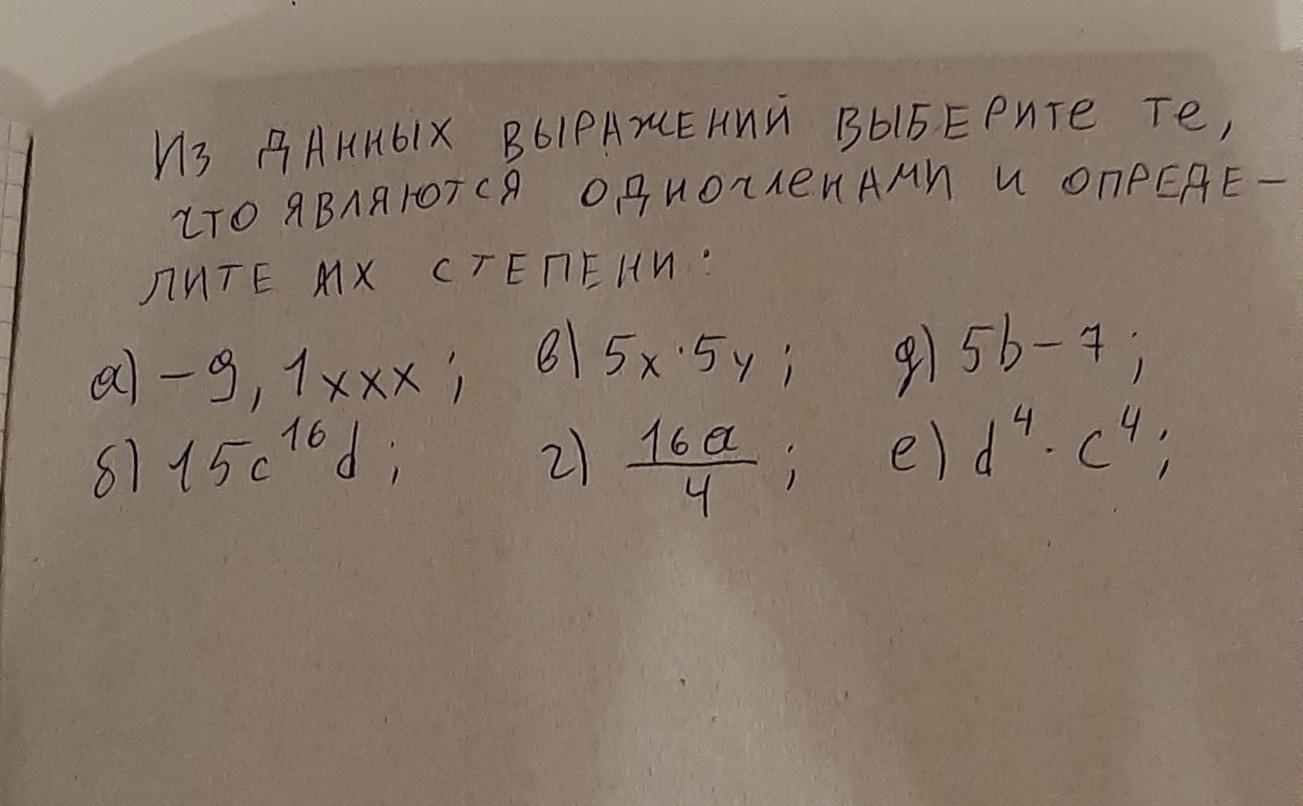 Из данных выражений выберите те,
что являются одночленами и опреде-
лите их степени:
а) -9,1xxx; в) 5x·5y; д) 5b-7;
б) 15c¹⁶d; г) 16a/4; е) d⁴·c⁴;